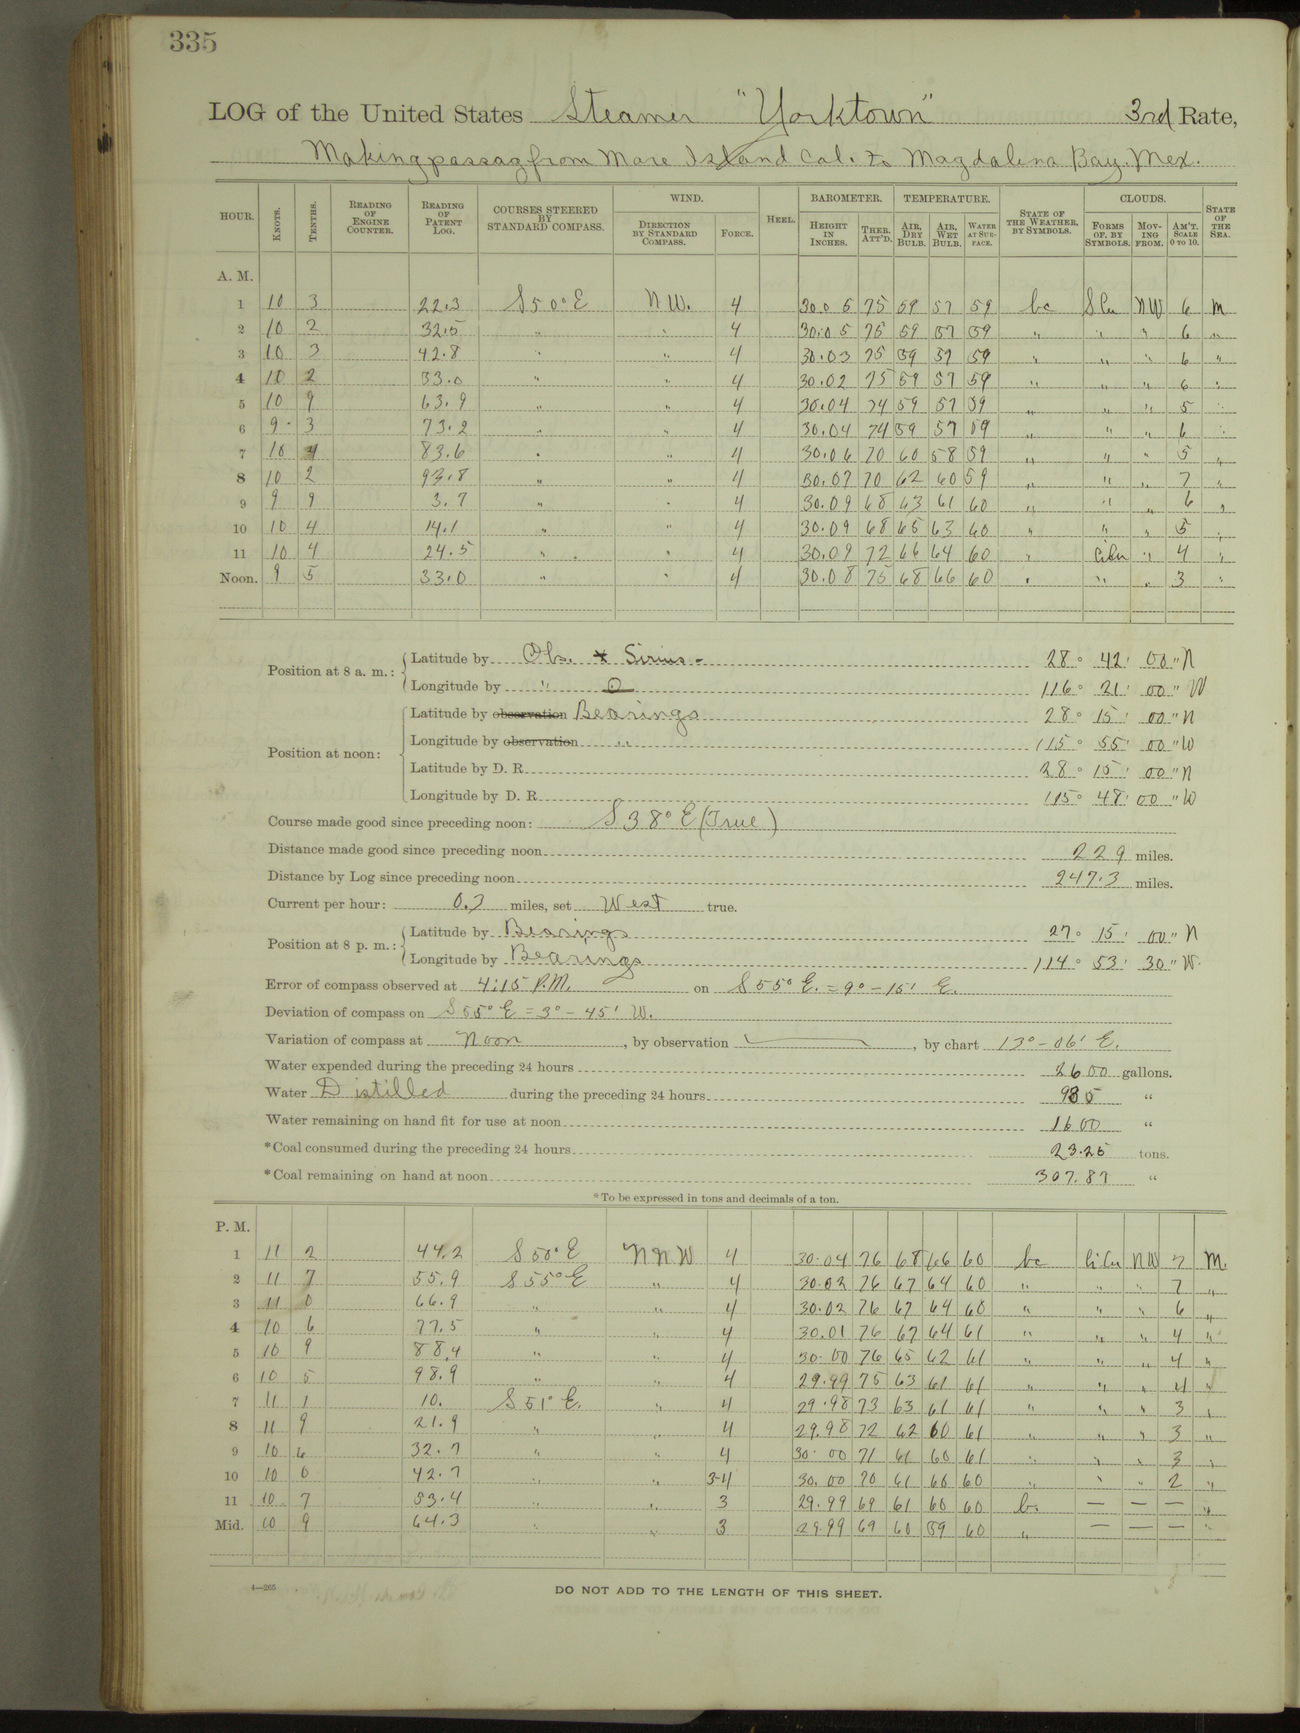 335
LOG of the United States Steamer "Yorktown" 3rd Rate,
Making passag from Mare Island Cal. to Magdalena Bay. Mex.
HOUR. KNOTS. TENTHS. READING OF ENGINE COUNTER. READING OF PATENT LOG. COURSES STEERED BY STANDARD COMPASS. WIND. DIRECTION BY STANDARD COMPASS. FORCE. HEEL. BAROMETER. HEIGHT IN INCHES. THER. ATT'D. TEMPERATURE. AIR, DRY BULB. AIR, WET BULB. WATER AT SURFACE. STATE OF THE WEATHER, BY SYMBOLS. CLOUDS. FORMS OF, BY SYMBOLS. MOVING FROM. AM'T. SCALE 0 TO 10. STATE OF THE SEA.
A. M.
1 10 3 22.3 S50°E NW. 4 30.05 75 59 57 59 bc SCu NW 6 M
2 10 2 32.5 " " 4 30.05 75 59 57 59 " " " 6 "
3 10 3 42.8 " " 4 30.03 75 59 57 59 " " " 6 "
4 10 2 53.0 " " 4 30.02 75 59 57 59 " " " 6 "
5 10 9 63.9 " " 4 30.04 74 59 57 59 " " " 5 "
6 9 3 73.2 " " 4 30.04 74 59 57 59 " " " 6 "
7 10 4 83.6 " " 4 30.06 70 60 58 59 " " " 5 "
8 10 2 93.8 " " 4 30.07 70 62 60 59 " " " 7 "
9 9 9 3.7 " " 4 30.09 68 63 61 60 " " " 6 "
10 10 4 14.1 " " 4 30.09 68 65 63 60 " " " 5 "
11 10 4 24.5 " " 4 30.09 72 66 64 60 " CiCu " 4 "
Noon. 9 5 33.0 " " 4 30.08 75 68 66 60 " " " 3 "
Position at 8 a. m.: Latitude by Obs. * Sirius - 28° 42' 00" N
Longitude by " ☉ 116° 21' 00" W
Position at noon: Latitude by observation Bearings 28° 15' 00" N
Longitude by observation " 115° 55' 00" W
Latitude by D. R. 28° 15' 00" N
Longitude by D. R. 115° 48' 00" W
Course made good since preceding noon: S38°E (True)
Distance made good since preceding noon 229 miles.
Distance by Log since preceding noon 247.3 miles.
Current per hour: 0.7 miles, set West true.
Position at 8 p. m.: Latitude by Bearings 27° 15' 00" N
Longitude by Bearings 114° 53' 30" W.
Error of compass observed at 4:15 P.M. on S55°E. = 9°-15' E.
Deviation of compass on S55°E = 3°-45' W.
Variation of compass at Noon, by observation, by chart 13°-06' E.
Water expended during the preceding 24 hours 2600 gallons.
Water Distilled during the preceding 24 hours 935 "
Water remaining on hand fit for use at noon 1600 "
*Coal consumed during the preceding 24 hours 23.25 tons.
*Coal remaining on hand at noon 307.87 "
*To be expressed in tons and decimals of a ton.
P. M.
1 11 2 44.2 S50°E NNW 4 30.04 76 68 66 60 bc CiCu NW 7 M.
2 11 7 55.9 S55°E " 4 30.02 76 67 64 60 " " " 7 "
3 11 0 66.9 " " 4 30.02 76 67 64 60 " " " 6 "
4 10 6 77.5 " " 4 30.01 76 67 64 61 " " " 4 "
5 10 9 88.4 " " 4 30.00 76 65 62 61 " " " 4 "
6 10 5 98.9 " " 4 29.99 75 63 61 61 " " " 4 "
7 11 1 10. S51°E. " 4 29.98 73 63 61 61 " " " 3 "
8 11 9 21.9 " " 4 29.98 72 62 60 61 " " " 3 "
9 10 6 32.7 " " 4 30.00 71 61 60 61 " " " 3 "
10 10 0 42.7 " " 3-4 30.00 70 61 60 60 " " " 2 "
11 10 7 53.4 " " 3 29.99 69 61 60 60 b. — — — "
Mid. 10 9 64.3 " " 3 29.99 69 60 59 60 " — — — "
4—265
DO NOT ADD TO THE LENGTH OF THIS SHEET.